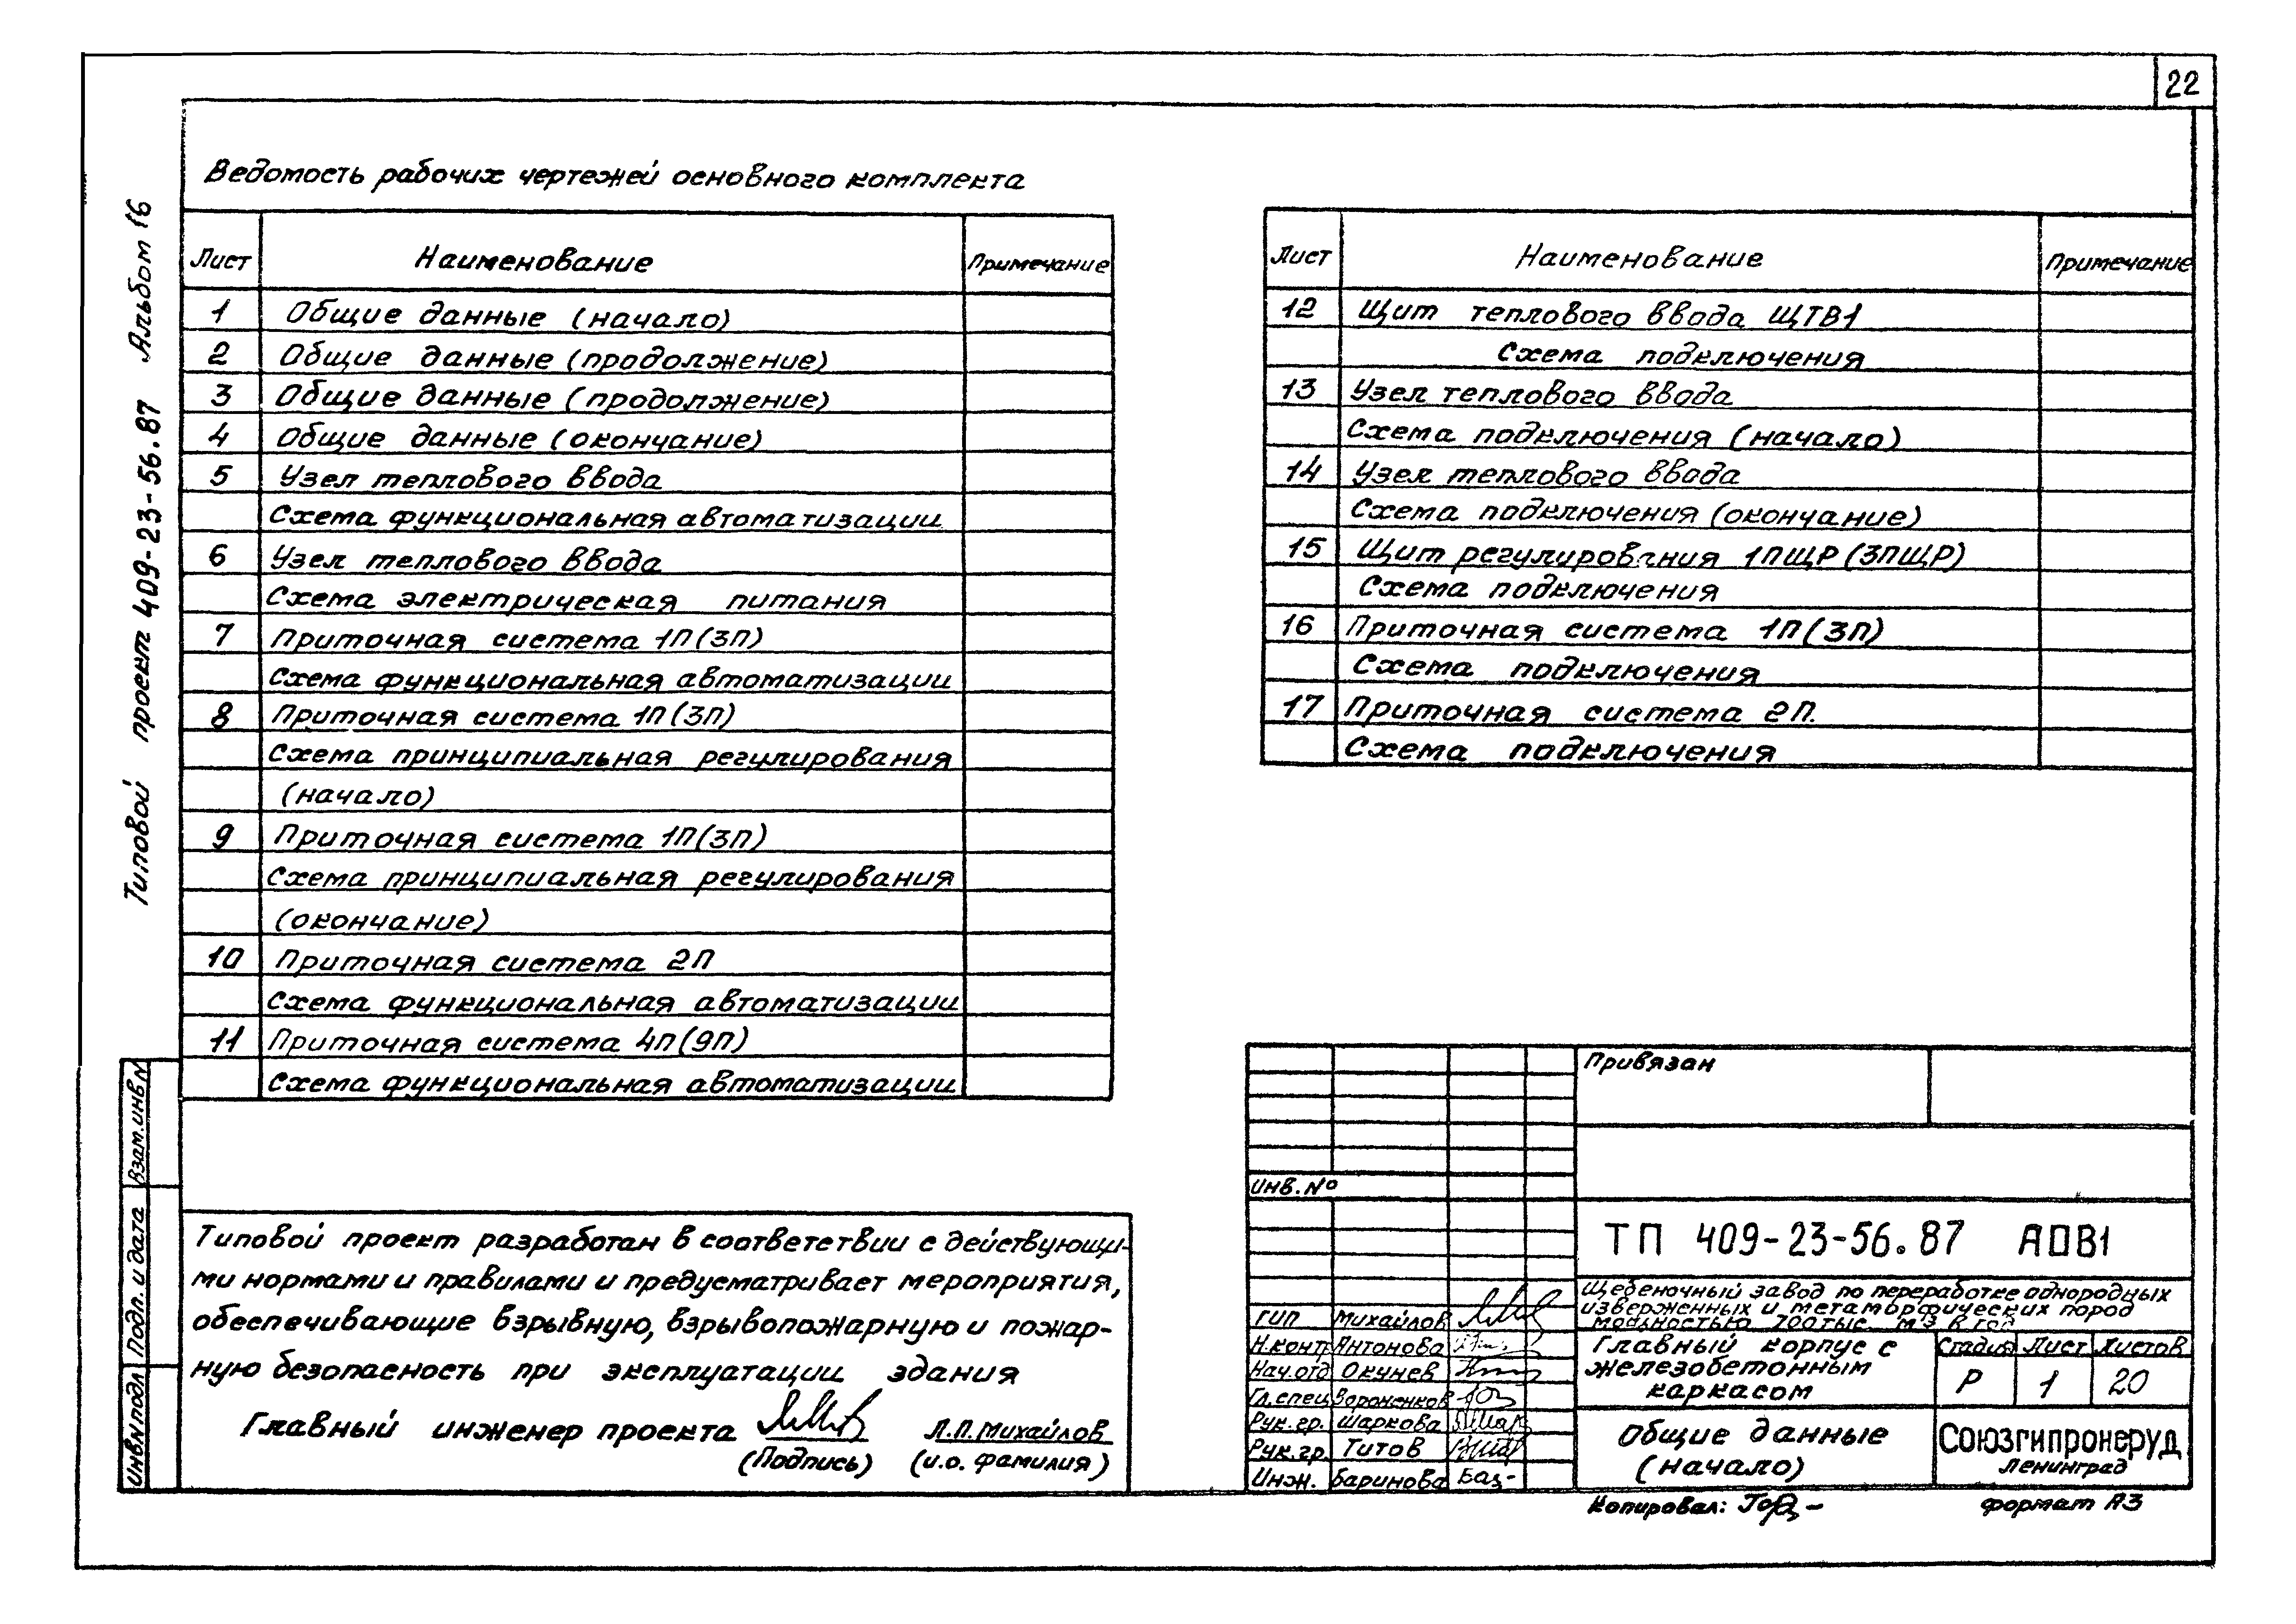 22
Типовой проект 409-23-56.87 Альбом 16
Ведомость рабочих чертежей основного комплекта
Лист Наименование Примечание
1 Общие данные (начало)
2 Общие данные (продолжение)
3 Общие данные (продолжение)
4 Общие данные (окончание)
5 Узел теплового ввода
Схема функциональная автоматизации
6 Узел теплового ввода
Схема электрическая питания
7 Приточная система 1П (3П)
Схема функциональная автоматизации
8 Приточная система 1П (3П)
Схема принципиальная регулирования
(начало)
9 Приточная система 1П (3П)
Схема принципиальная регулирования
(окончание)
10 Приточная система 2П
Схема функциональная автоматизации
11 Приточная система 4П (9П)
Схема функциональная автоматизации
Лист Наименование Примечание
12 Щит теплового ввода ЩТВ1
Схема подключения
13 Узел теплового ввода
Схема подключения (начало)
14 Узел теплового ввода
Схема подключения (окончание)
15 Щит регулирования 1ПЩР (3ПЩР)
Схема подключения
16 Приточная система 1П (3П)
Схема подключения
17 Приточная система 2П.
Схема подключения
Типовой проект разработан в соответствии с действующи-
ми нормами и правилами и предусматривает мероприятия,
обеспечивающие взрывную, взрывопожарную и пожар-
ную безопасность при эксплуатации здания
Главный инженер проекта Л.П. Михайлов
(Подпись) (и.о. фамилия)
Взам.инв.N
Подп. и дата
Инв.N подл
Привязан
Инв. №
ТП 409-23-56.87 АОВ1
Щебеночный завод по переработке однородных
изверженных и метаморфических пород
мощностью 700 тыс. м3 в год
ГИП Михайлов
Н.контр Антонова
Нач.отд Окунев
Гл.спец Вороненков
Рук.гр. Шаркова
Рук.гр. Титов
Инж. Баринова
Главный корпус с
железобетонным
каркасом
Стадия Лист Листов
Р 1 20
Общие данные
(начало)
Союзгипронеруд
Ленинград
Копировал:
формат А3